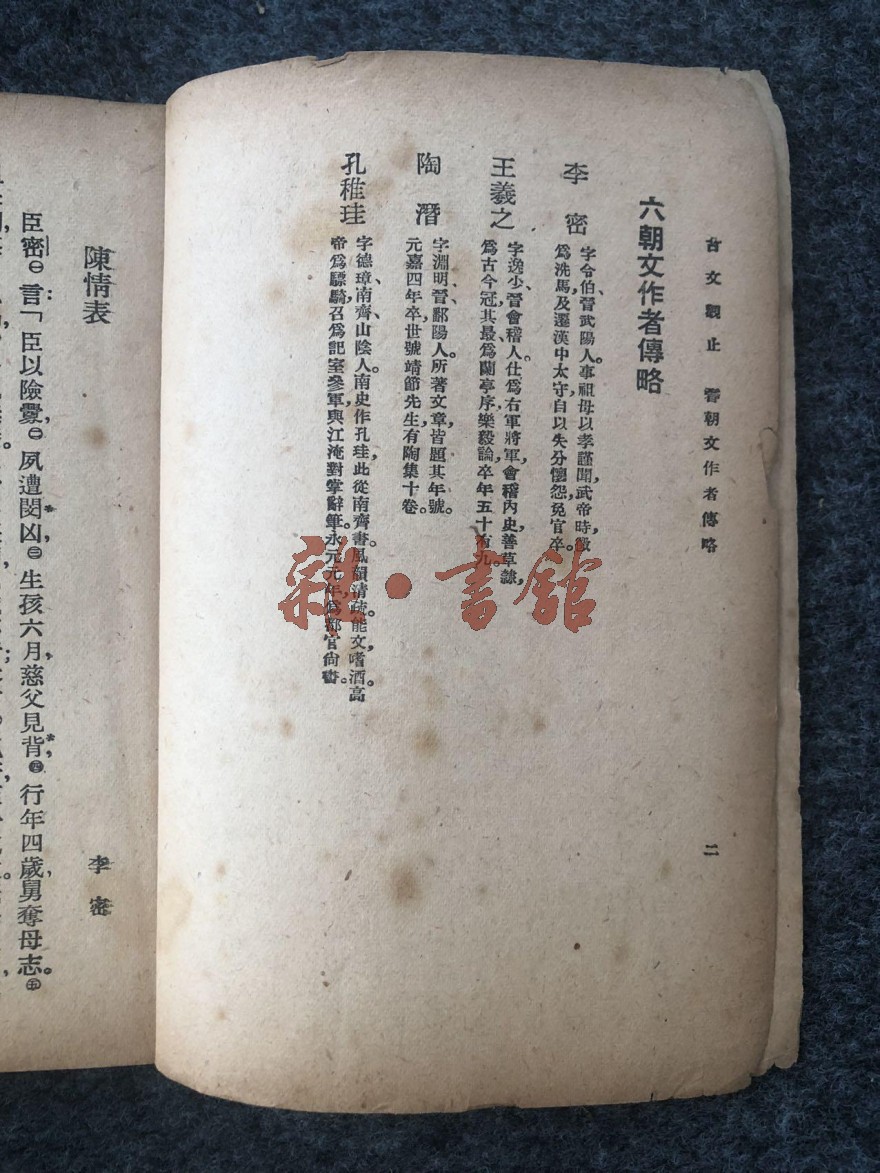 古文觀止 晉朝文作者傳略
二
六朝文作者傳略
李密
字令伯、晉武陽人。事祖母以孝謹聞、武帝時徵
爲洗馬、及遷漢中太守、自以失分懷怨、免官卒。
王羲之
字逸少、晉會稽人。仕爲右軍將軍、會稽內史、善草隸、
爲古今冠、其最爲蘭亭序、樂毅論、卒年五十有九。
陶潛
字淵明、晉鄱陽人。所著文章、皆題其年號。
元嘉四年卒、世號靖節先生、有陶集十卷。
孔稚珪
字德璋、南齊山陰人。南史作孔珪、此從南齊書。風韻清疏、能文嗜酒。高
帝爲驃騎、召爲記室參軍、與江淹對掌辭筆。永元元年、爲都官尚書。
陳情表
李密
臣密㊀言「臣以險釁、㊁夙遭閔凶、㊂生孩六月、慈父見背、㊃行年四歲、舅奪母志。㊄